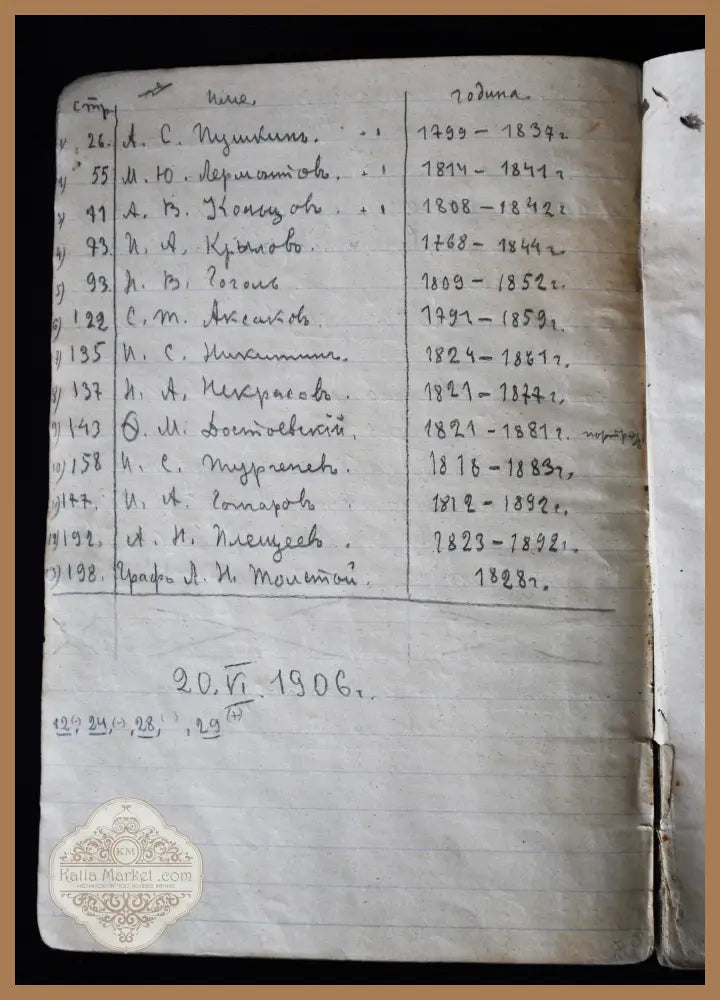 стр. № име. година.
1) 26. А. С. Пушкинъ. 1799 – 1837 г.
2) 55 М. Ю. Лермонтовъ. 1814 – 1841 г.
3) 71 А. В. Кольцовъ. 1808 – 1842 г.
4) 73. И. А. Крыловъ. 1768 – 1844 г.
5) 93. Н. В. Гоголь 1809 – 1852 г.
6) 122 С. Т. Аксаковъ. 1791 – 1859 г.
7) 135 И. С. Никитинъ. 1824 – 1861 г.
8) 137 Н. А. Некрасовъ. 1821 – 1877 г.
9) 143 Ѳ. М. Достоевскій. 1821 – 1881 г.
10) 158 И. С. Тургеневъ. 1818 – 1883 г.
11) 177. И. А. Гончаровъ 1812 – 1892 г.
12) 192. А. Н. Плещеевъ. 1823 – 1892 г.
13) 198. Графъ Л. Н. Толстой. 1828 г.
20. VI. 1906 г.
12(-), 24,(-), 28,( ), 29(+)
KM
Kalia Market .com